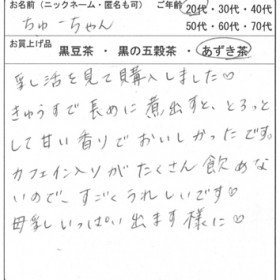 お名前（ニックネーム・匿名も可） ご年齢 20代・30代・40代
ちゅーちゃん 50代・60代・70代
お買上げ品
黒豆茶 ・ 黒の五穀茶 ・ あずき茶
乳活を見て購入しました♡
きゅうすで長めに煮出すと、とろっと
して甘い香りでおいしかったです。
カフェイン入りがたくさん飲めな
いので、すごくうれしいです♡
母乳いっぱい出ます様に♡